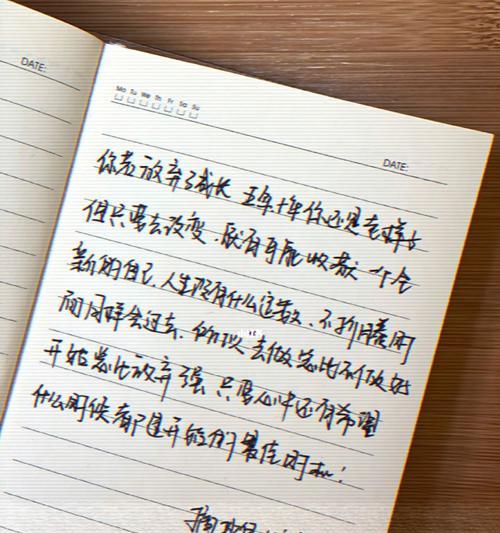 DATE:
Mo Tu We Th Fr Sa Su
DATE:
你若放弃了成长 五年十年你还是老样子
但只要去改变、就有可能收获一个全
新的自己、人生没有什么定数、不折腾
时间同样会过去、所以去做总比不做好
开始总比放弃强 只要心中还有希望
什么时候都是开始的最佳时机!
摘